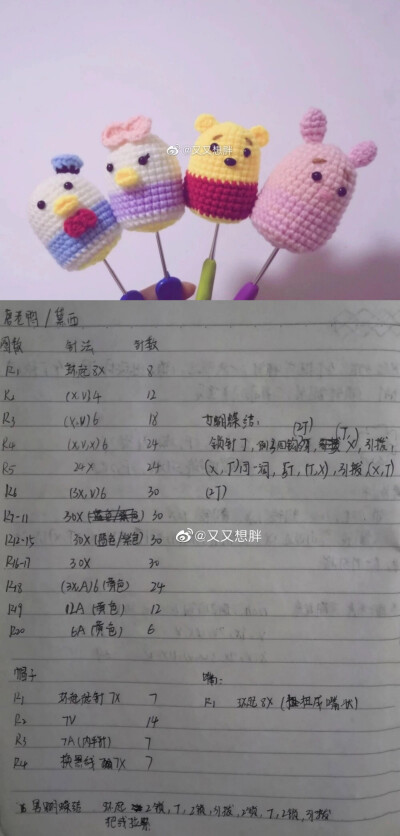 @又又想胖
唐老鸭/黛西
圈数 针法 针数
R1 环起8X 8
R2 (X,V)4 12
R3 (X,V)6 18
R4 (X,V,X)6 24
R5 24X 24
R6 (3X,V)6 30
R7-11 30X 30
R12-15 30X 30
R16-17 30X 30
R18 (3X,A)6(黄色) 24
R19 12A(黄色) 12
R20 6A(黄色) 6
女蝴蝶结:
(X,T)同一洞, (T,X),引拔(X,T)
(2T)
@又又想胖
帽子
R1 环起 7X 7
R2 7V 14
R3 7A(内半针) 7
R4 换黑线 7X 7
嘴:
R1 环起8X
男蝴蝶结 环起 2锁,T,2锁,引拔,2锁,T,2锁,引拔
把线拉紧